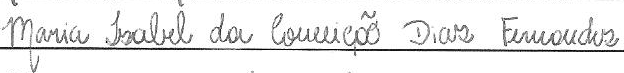 Maria Isabel da Conceição Dias Fernandes